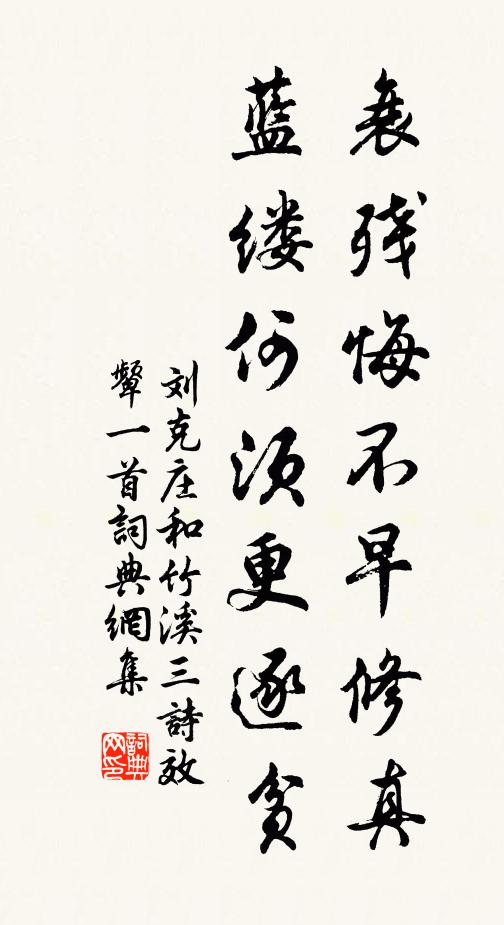 衰残悔不早修真
蓝缕何须更逐贫
刘克庄和竹溪三詩效
颦一首詞典網集
詞典网印